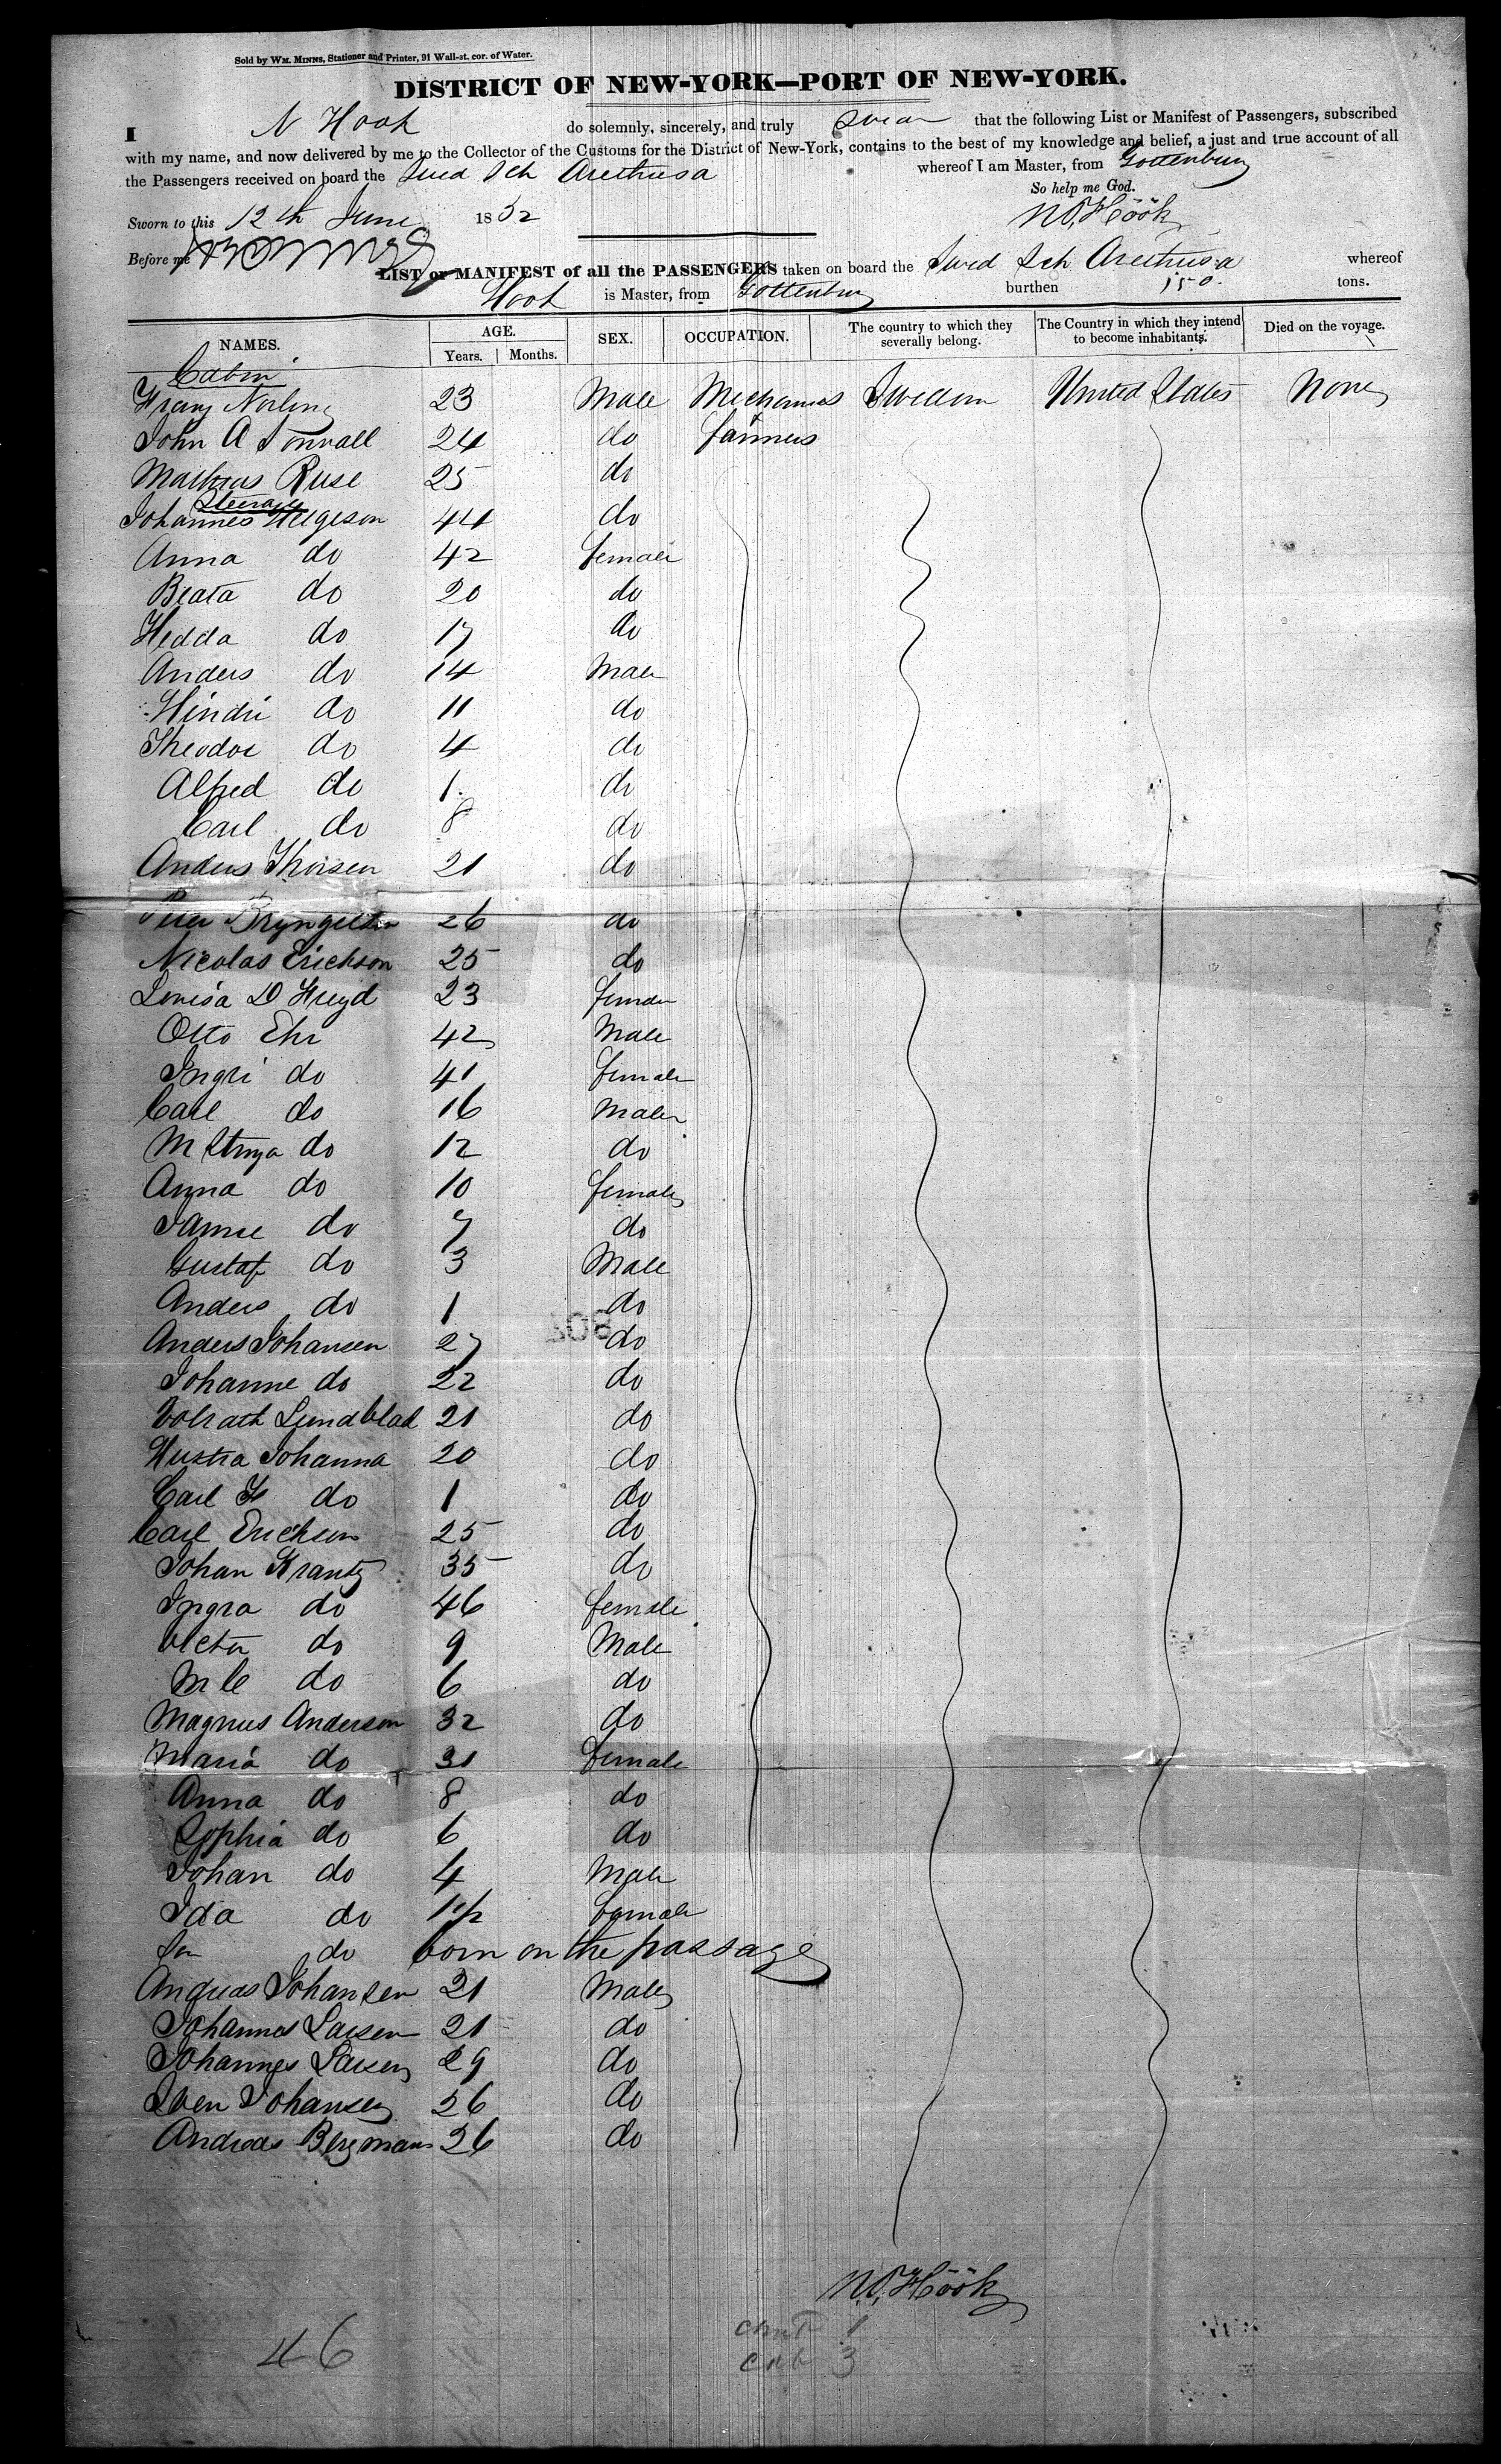 Sold by WM. MINNS, Stationer and Printer, 91 Wall-st. cor. of Water.
DISTRICT OF NEW-YORK—PORT OF NEW-YORK.
I N Hook do solemnly, sincerely, and truly swear that the following List or Manifest of Passengers, subscribed
with my name, and now delivered by me to the Collector of the Customs for the District of New-York, contains to the best of my knowledge and belief, a just and true account of all
the Passengers received on board the Swed Sch Arethusa whereof I am Master, from Gottenburg
So help me God.
Sworn to this 12th June 1852 N.O. Höök
Before me
LIST or MANIFEST of all the PASSENGERS taken on board the Swed Sch Arethusa whereof
Hook is Master, from Gottenburg burthen 150. tons.
NAMES. AGE. Years. Months. SEX. OCCUPATION. The country to which they severally belong. The Country in which they intend to become inhabitants. Died on the voyage.
Cabin
Franz Norling 23 Male Mechanics Sweden United States None
John A Tornvall 24 do & farmers
Mathias Ruse 25 do
Steerage
Johannes Helgeson 44 do
Anna do 42 female
Beata do 20 do
Hedda do 17 do
Anders do 14 Male
Hindri do 11 do
Theodor do 4 do
Alfred do 1 do
Carl do 8 do
Anders Thorsen 21 do
Peter Bryngelson 26 do
Nicolas Erickson 25 do
Lovisa D 23 female
Otto Ehr 42 Male
Ingri do 41 female
Carl do 16 Male
M do 12 do
Anna do 10 female
do 7 do
Gustaf do 3 Male
Anders do 1 do
Anders Johansen 27 do
Johanne do 22 do
Volrath Lundblad 21 do
Johanna 20 do
Carl F do 1 do
Carl Erickson 25 do
Johan Krantz 35 do
Ingra do 46 female
Victor do 9 Male
do 6 do
Magnus Anderson 32 do
Maria do 31 female
Anna do 8 do
Sophia do 6 do
Johan do 4 Male
Ida do 1 1/2 female
Son do born on the passage
Andreas Johansen 21 Male
Johannes Larsen 21 do
Johannes Larsen 29 do
Sven Johansen 26 do
Andreas Bergman 26 do
N.O. Höök
46
1
cab 3